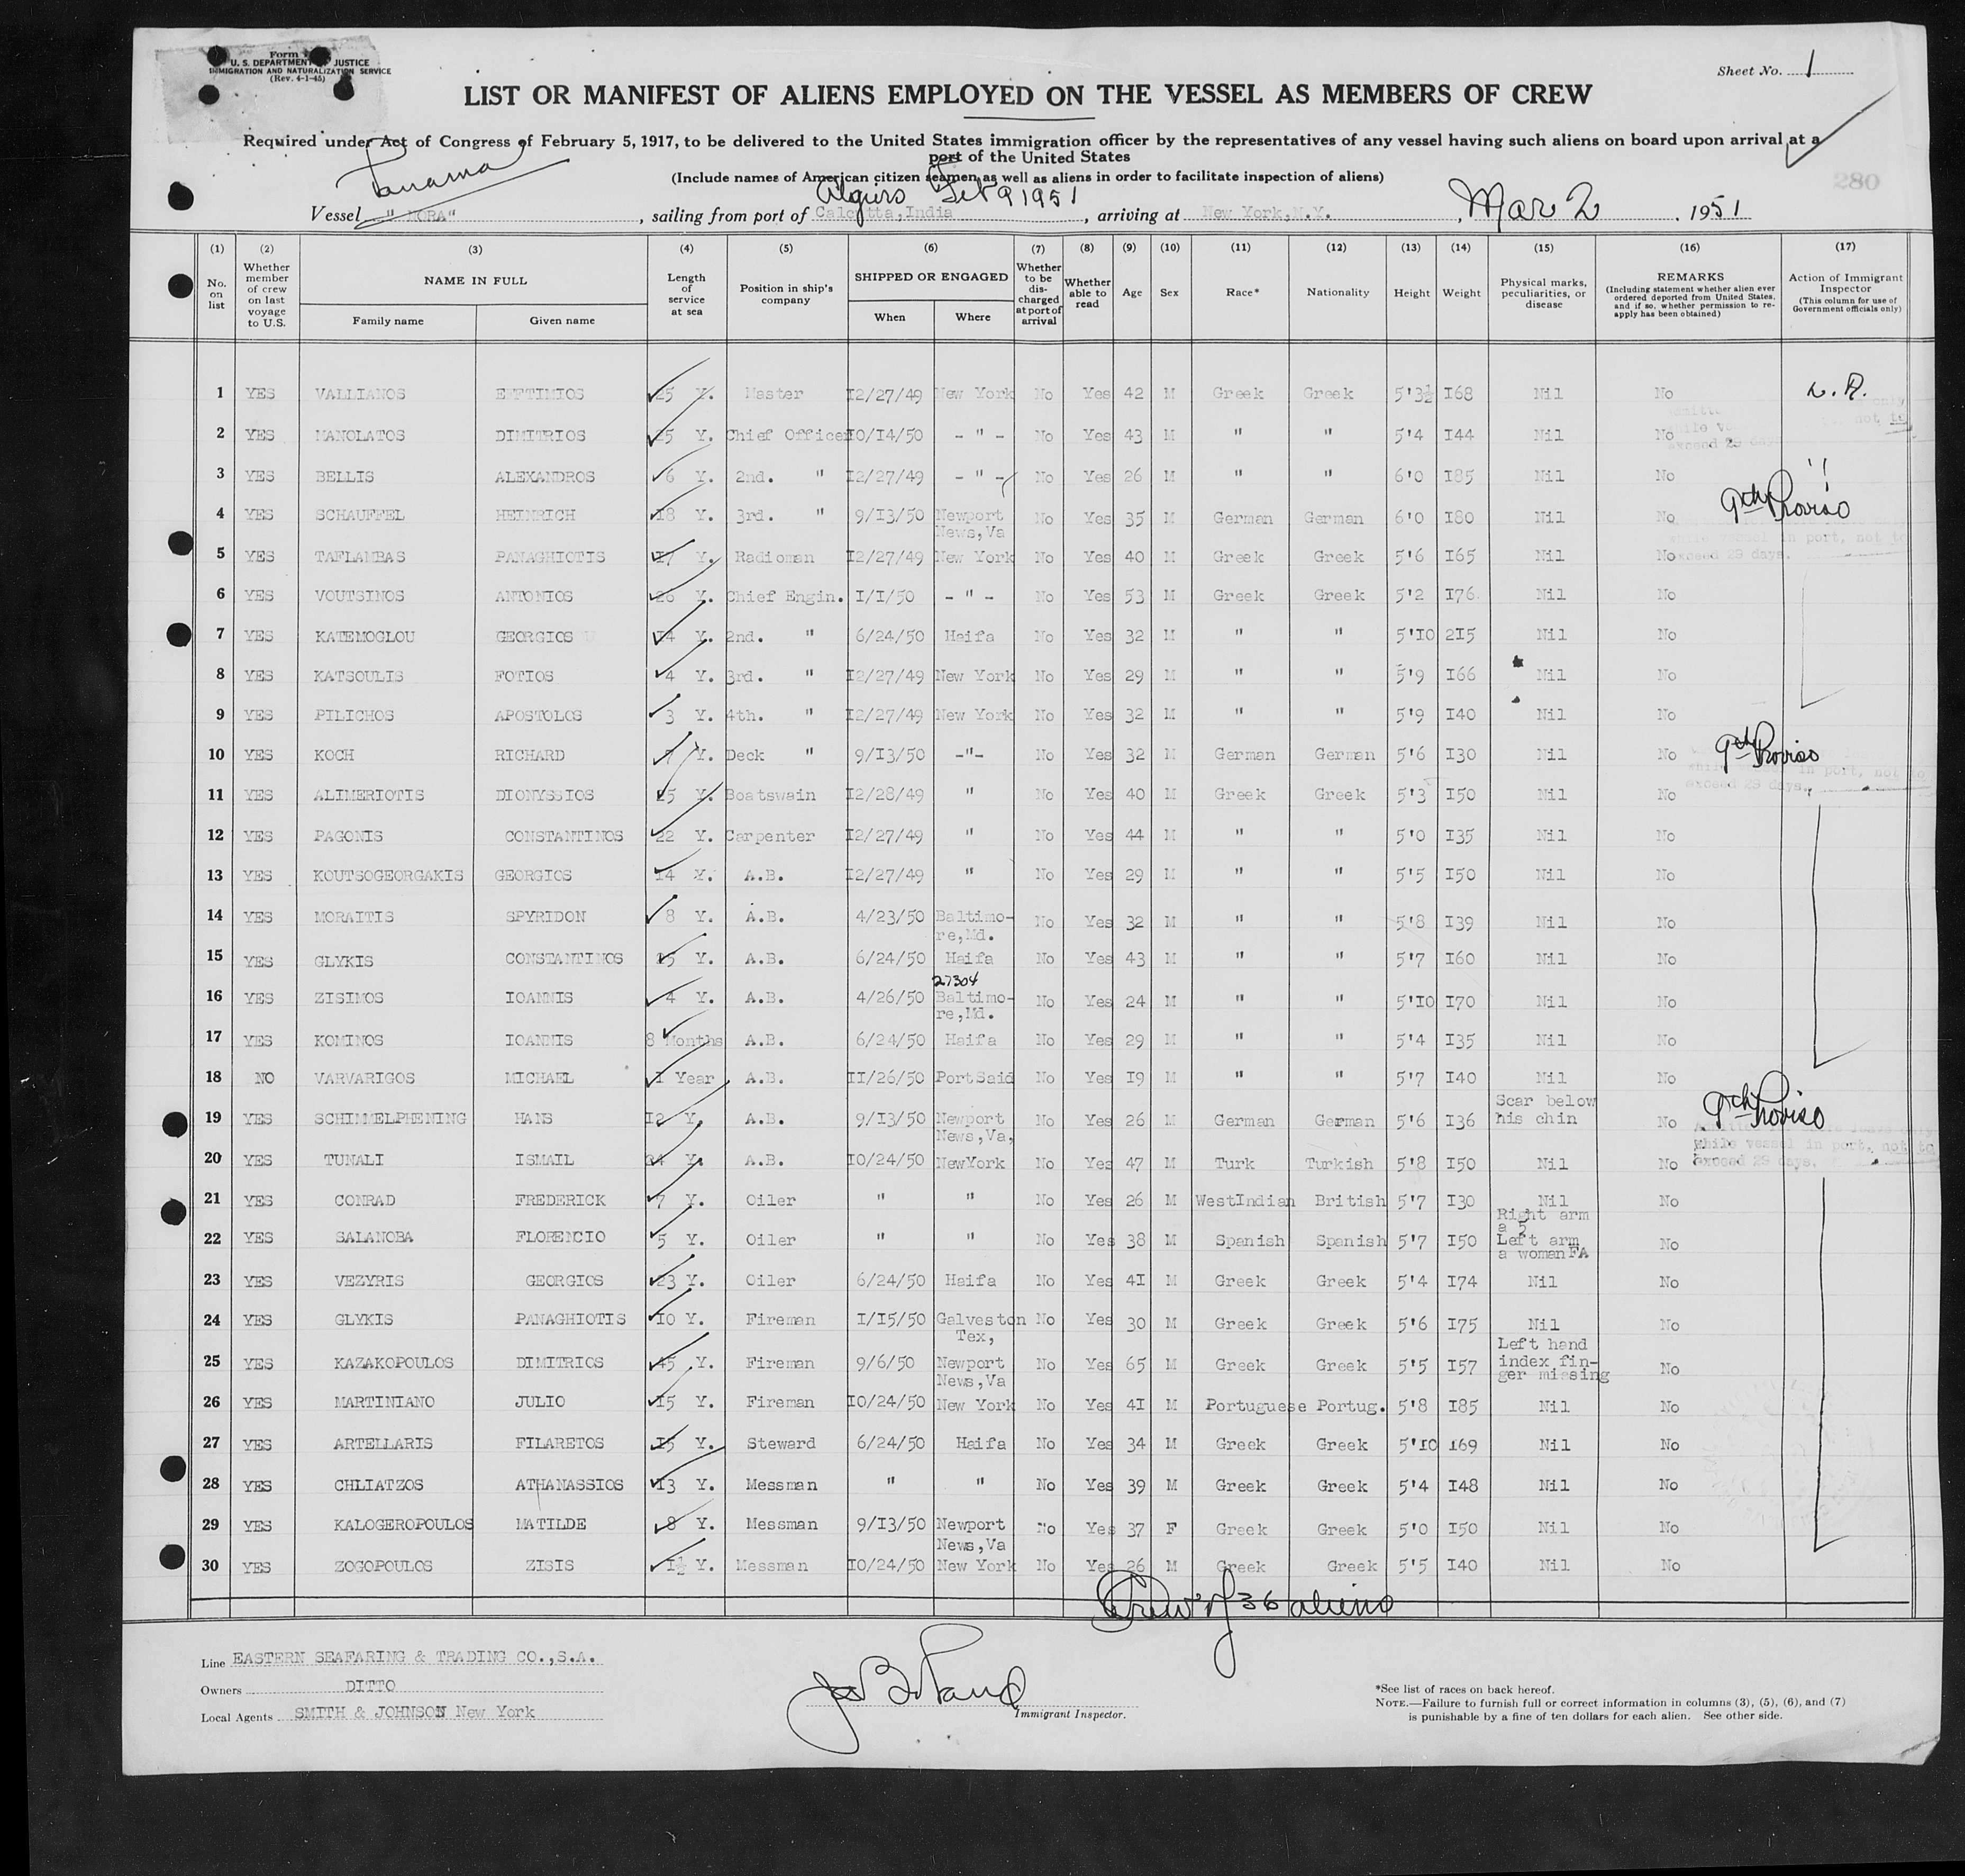 Form
U. S. DEPARTMENT OF JUSTICE
IMMIGRATION AND NATURALIZATION SERVICE
(Rev. 4-1-45)
Sheet No. 1
LIST OR MANIFEST OF ALIENS EMPLOYED ON THE VESSEL AS MEMBERS OF CREW
Required under Act of Congress of February 5, 1917, to be delivered to the United States immigration officer by the representatives of any vessel having such aliens on board upon arrival at a
port of the United States
(Include names of American citizen seamen as well as aliens in order to facilitate inspection of aliens)
Panama
280
Algiers Feb 9 1951
Vessel "MORA", sailing from port of Calcutta,India, arriving at New York,N.Y., Mar 2, 1951
(1) (2) (3) (4) (5) (6) (7) (8) (9) (10) (11) (12) (13) (14) (15) (16) (17)
No. on list
Whether member of crew on last voyage to U.S.
NAME IN FULL
Family name
Given name
Length of service at sea
Position in ship's company
SHIPPED OR ENGAGED
When
Where
Whether to be discharged at port of arrival
Whether able to read
Age
Sex
Race*
Nationality
Height
Weight
Physical marks, peculiarities, or disease
REMARKS
(Including statement whether alien ever ordered deported from United States, and if so, whether permission to reapply has been obtained)
Action of Immigrant Inspector
(This column for use of Government officials only)
1 YES VALLIANOS EFFTIMIOS 25 Y. Master I2/27/49 New York No Yes 42 M Greek Greek 5'3½ I68 Nil No
2 YES MANOLATOS DIMITRIOS 25 Y. Chief Officer I0/I4/50 - " - No Yes 43 M " " 5'4 I44 Nil No
exceed 29 days
3 YES BELLIS ALEXANDROS 6 Y. 2nd. " I2/27/49 - " - No Yes 26 M " " 6'0 I85 Nil No
4 YES SCHAUFFEL HEINRICH I8 Y. 3rd. " 9/I3/50 Newport News,Va No Yes 35 M German German 6'0 I80 Nil No 9th Proviso
while vessel in port, not to
exceed 29 days.
5 YES TAFLAMBAS PANAGHIOTIS I7 Y. Radioman I2/27/49 New York No Yes 40 M Greek Greek 5'6 I65 Nil No
6 YES VOUTSINOS ANTONIOS 26 Y. Chief Engin. I/I/50 - " - No Yes 53 M Greek Greek 5'2 I76 Nil No
7 YES KATEMOGLOU GEORGIOS I4 Y. 2nd. " 6/24/50 Haifa No Yes 32 M " " 5'I0 2I5 Nil No
8 YES KATSOULIS FOTIOS 4 Y. 3rd. " I2/27/49 New York No Yes 29 M " " 5'9 I66 Nil No
9 YES PILICHOS APOSTOLOS 3 Y. 4th. " I2/27/49 New York No Yes 32 M " " 5'9 I40 Nil No
10 YES KOCH RICHARD 7 Y. Deck " 9/I3/50 -"- No Yes 32 M German German 5'6 I30 Nil No 9th Proviso
while vessel in port, not to
exceed 29 days.
11 YES ALIMERIOTIS DIONYSSIOS 25 Y. Boatswain I2/28/49 " No Yes 40 M Greek Greek 5'3 I50 Nil No
12 YES PAGONIS CONSTANTINOS 22 Y. Carpenter I2/27/49 " No Yes 44 M " " 5'0 I35 Nil No
13 YES KOUTSOGEORGAKIS GEORGIOS I4 Y. A.B. I2/27/49 " No Yes 29 M " " 5'5 I50 Nil No
14 YES MORAITIS SPYRIDON 8 Y. A.B. 4/23/50 Baltimo-re,Md. No Yes 32 M " " 5'8 I39 Nil No
15 YES GLYKIS CONSTANTINOS 25 Y. A.B. 6/24/50 Haifa No Yes 43 M " " 5'7 I60 Nil No
27304
16 YES ZISIMOS IOANNIS 4 Y. A.B. 4/26/50 Baltimo-re,Md. No Yes 24 M " " 5'I0 I70 Nil No
17 YES KOMINOS IOANNIS 8 Months A.B. 6/24/50 Haifa No Yes 29 M " " 5'4 I35 Nil No
18 NO VARVARIGOS MICHAEL I Year A.B. II/26/50 PortSaid No Yes I9 M " " 5'7 I40 Nil No
19 YES SCHIMMELPHENING HANS I2 Y. A.B. 9/I3/50 Newport News,Va, No Yes 26 M German German 5'6 I36 Scar below his chin No 9th Proviso
while vessel in port, not to
exceed 29 days.
20 YES TUNALI ISMAIL 34 Y. A.B. I0/24/50 NewYork No Yes 47 M Turk Turkish 5'8 I50 Nil No
21 YES CONRAD FREDERICK 7 Y. Oiler " " No Yes 26 M WestIndian British 5'7 I30 Nil No
22 YES SALANOBA FLORENCIO 5 Y. Oiler " " No Yes 38 M Spanish Spanish 5'7 I50 Right arm a 5 Left arm a woman FA No
23 YES VEZYRIS GEORGIOS 23 Y. Oiler 6/24/50 Haifa No Yes 4I M Greek Greek 5'4 I74 Nil No
24 YES GLYKIS PANAGHIOTIS I0 Y. Fireman I/I5/50 Galveston Tex, No Yes 30 M Greek Greek 5'6 I75 Nil No
25 YES KAZAKOPOULOS DIMITRIOS 45 Y. Fireman 9/6/50 Newport News,Va No Yes 65 M Greek Greek 5'5 I57 Left hand index fin-ger missing No
26 YES MARTINIANO JULIO I5 Y. Fireman I0/24/50 New York No Yes 4I M Portuguese Portug. 5'8 I85 Nil No
27 YES ARTELLARIS FILARETOS I5 Y. Steward 6/24/50 Haifa No Yes 34 M Greek Greek 5'I0 I69 Nil No
28 YES CHLIATZOS ATHANASSIOS I3 Y. Messman " " No Yes 39 M Greek Greek 5'4 I48 Nil No
29 YES KALOGEROPOULOS MATILDE 8 Y. Messman 9/I3/50 Newport News,Va No Yes 37 F Greek Greek 5'0 I50 Nil No
30 YES ZOGOPOULOS ZISIS I½ Y. Messman I0/24/50 New York No Yes 26 M Greek Greek 5'5 I40 Nil No
Crew of 36 aliens
Line EASTERN SEAFARING & TRADING CO.,S.A.
Owners DITTO
Local Agents SMITH & JOHNSON New York
Immigrant Inspector.
*See list of races on back hereof.
NOTE.—Failure to furnish full or correct information in columns (3), (5), (6), and (7)
is punishable by a fine of ten dollars for each alien. See other side.